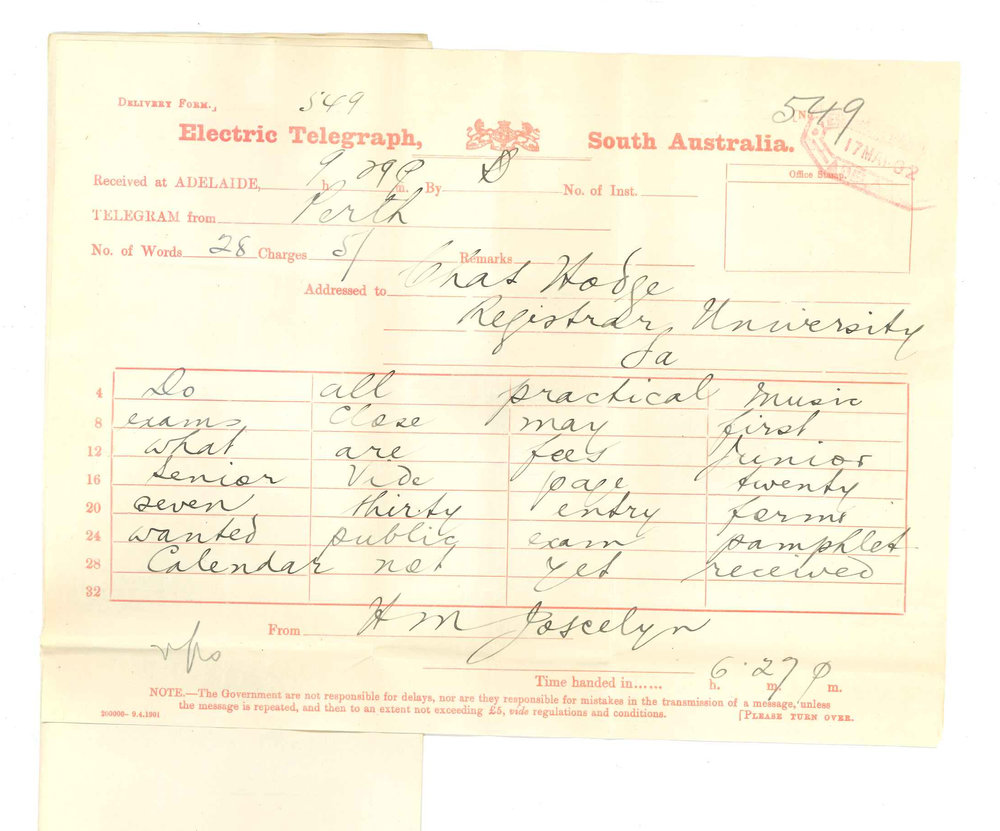 DELIVERY FORM. 549 N 549
Electric Telegraph, South Australia.
17 MA 02
Received at ADELAIDE, 9 h. 29 p m. By D No. of Inst.
Office Stamp.
TELEGRAM from Perth
No. of Words 28 Charges 5/ Remarks
Addressed to Chas Hodge
Registrar, University
Sa
4 Do all practical Music
8 exams Close may first
12 what are fees Junior
16 Senior Vide page twenty
20 seven thirty entry forms
24 wanted public exam pamphlet
28 Calendar not yet received
32
From H M Joscelyn
Time handed in...... 6 h. 27 m. p m.
NOTE.—The Government are not responsible for delays, nor are they responsible for mistakes in the transmission of a message, unless
the message is repeated, and then to an extent not exceeding £5, vide regulations and conditions.
200000– 9.4.1901 [PLEASE TURN OVER.